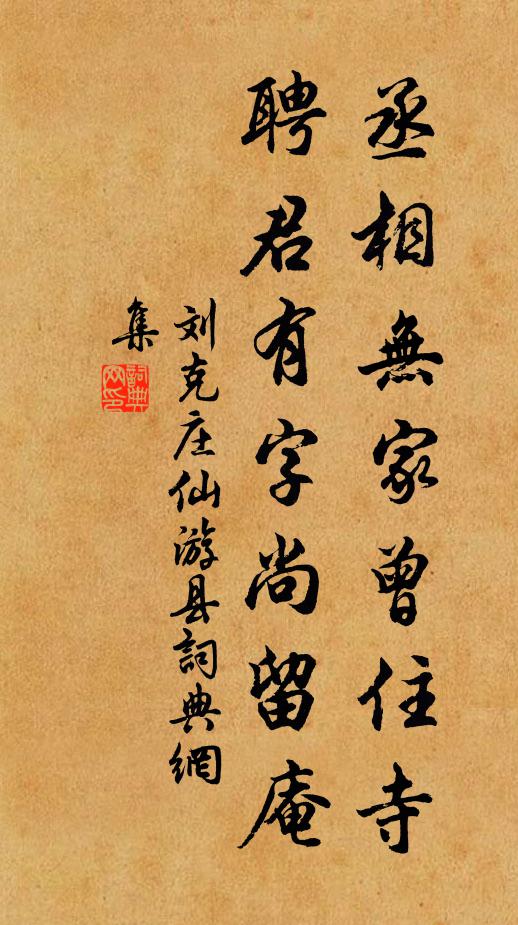 丞相無家曾住寺
聘君有字尚留庵
刘克庄仙游县詞典網
集
詞典網印